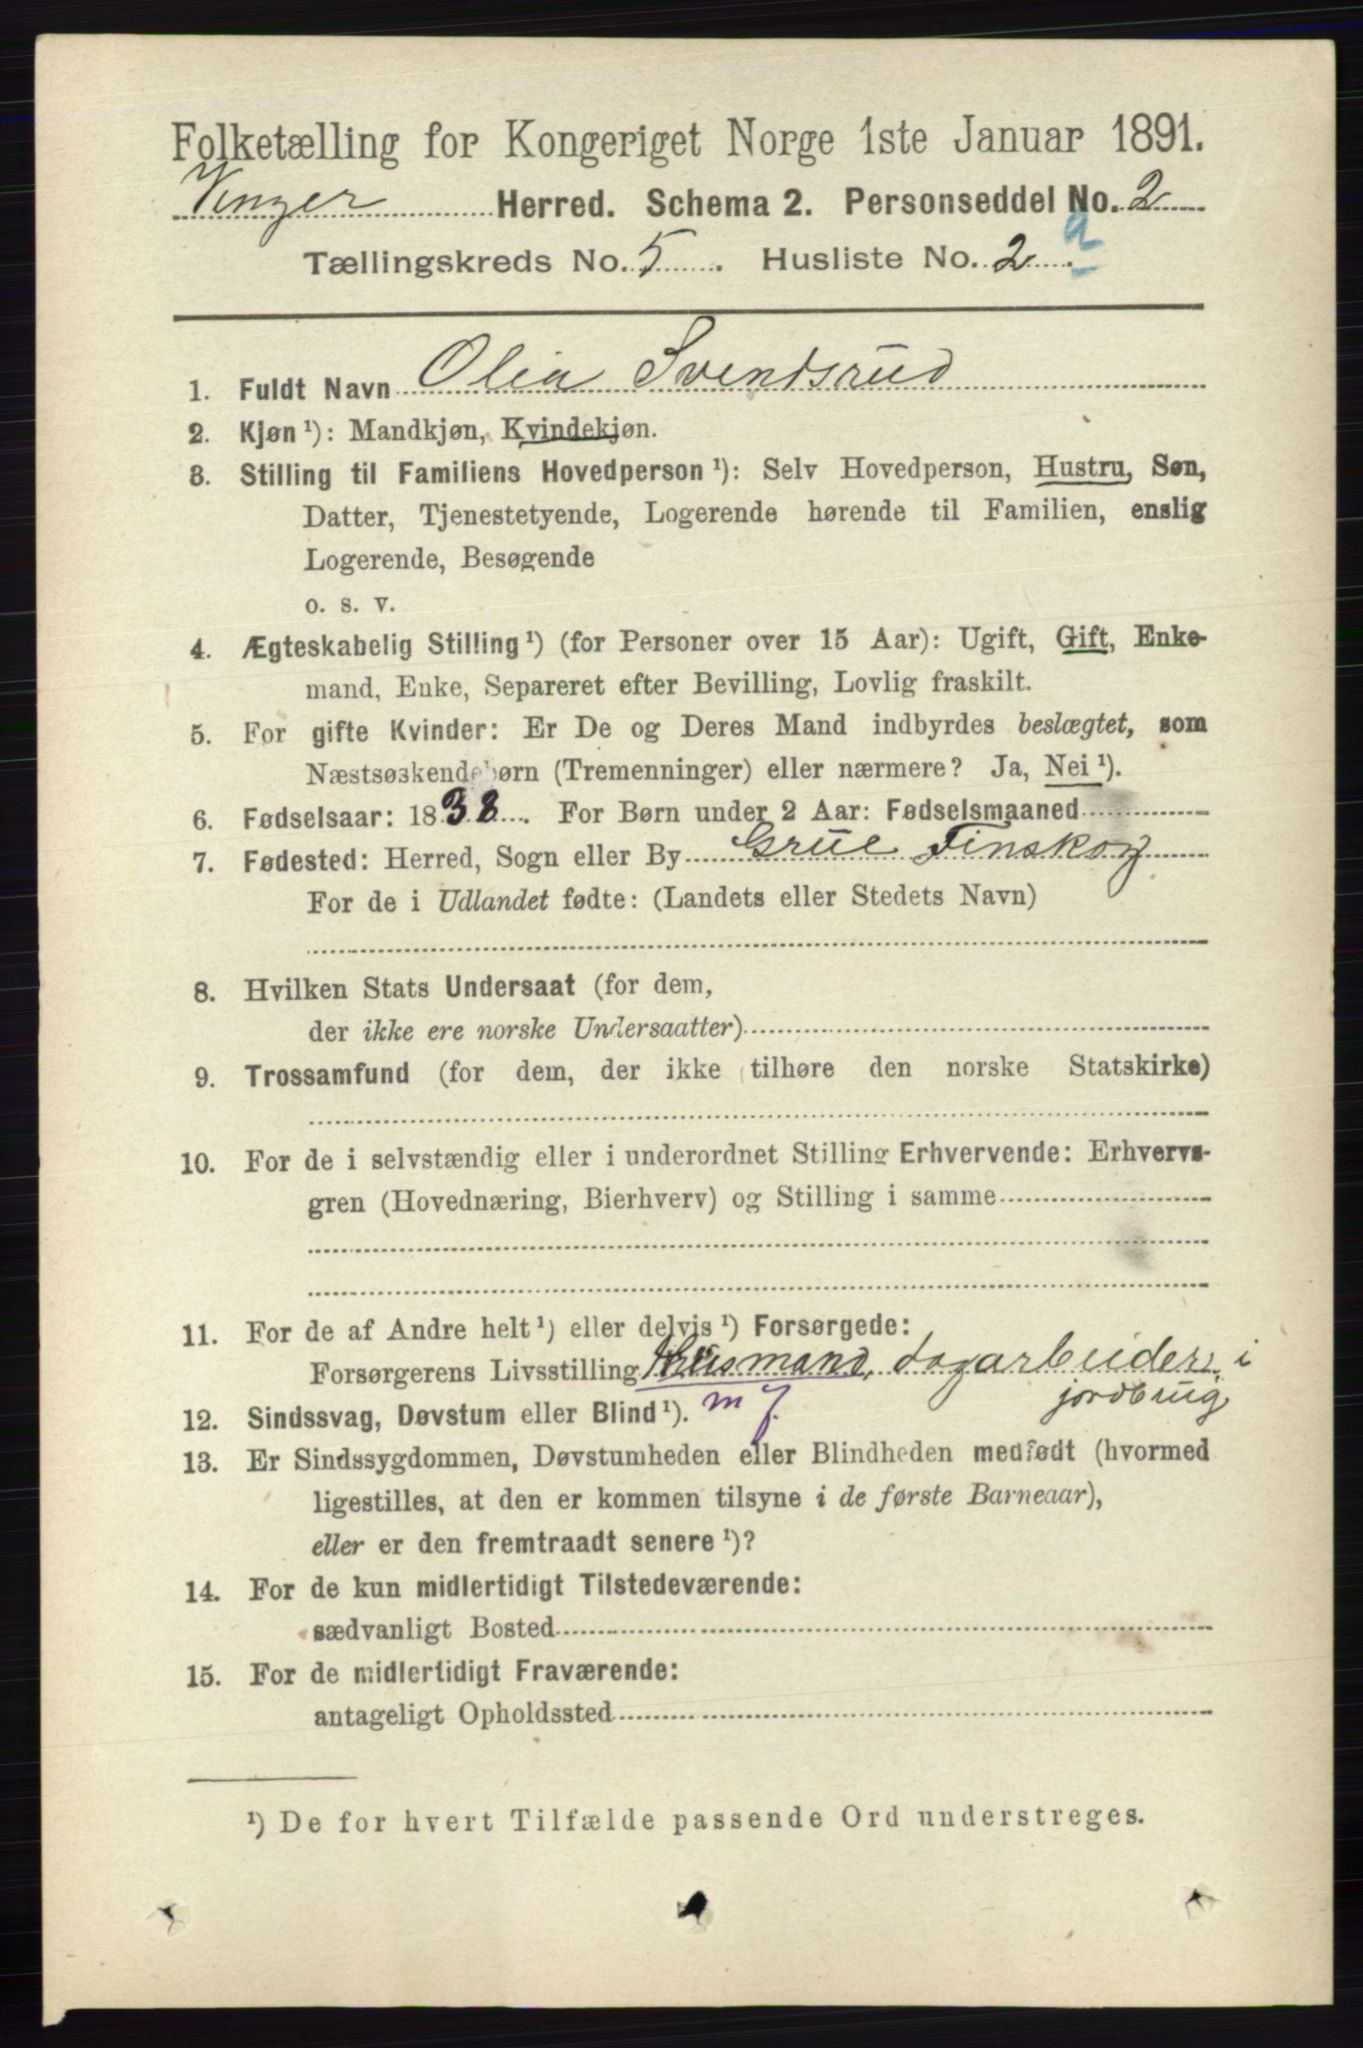 Folketælling for Kongeriget Norge 1ste Januar 1891.
Vinger Herred. Schema 2. Personseddel No. 2
Tællingskreds No. 5. Husliste No. 2 a.
1. Fuldt Navn Olia Svendsrud
2. Kjøn ¹): Mandkjøn, Kvindekjøn.
3. Stilling til Familiens Hovedperson ¹): Selv Hovedperson, Hustru, Søn,
Datter, Tjenestetyende, Logerende hørende til Familien, enslig
Logerende, Besøgende
o. s. v.
4. Ægteskabelig Stilling ¹) (for Personer over 15 Aar): Ugift, Gift, Enke-
mand, Enke, Separeret efter Bevilling, Lovlig fraskilt.
5. For gifte Kvinder: Er De og Deres Mand indbyrdes beslægtet, som
Næstsøskendebørn (Tremenninger) eller nærmere? Ja, Nei ¹).
6. Fødselsaar: 1838. For Børn under 2 Aar: Fødselsmaaned
7. Fødested: Herred, Sogn eller By Grue Finskog
For de i Udlandet fødte: (Landets eller Stedets Navn)
8. Hvilken Stats Undersaat (for dem,
der ikke ere norske Undersaatter)
9. Trossamfund (for dem, der ikke tilhøre den norske Statskirke)
10. For de i selvstændig eller i underordnet Stilling Erhvervende: Erhvervs-
gren (Hovednæring, Bierhverv) og Stilling i samme
11. For de af Andre helt ¹) eller delvis ¹) Forsørgede:
Forsørgerens Livsstilling Husmand, dagarbeider i
jordbrug
12. Sindssvag, Døvstum eller Blind ¹). m j.
13. Er Sindssygdommen, Døvstumheden eller Blindheden medfødt (hvormed
ligestilles, at den er kommen tilsyne i de første Barneaar),
eller er den fremtraadt senere ¹)?
14. For de kun midlertidigt Tilstedeværende:
sædvanligt Bosted
15. For de midlertidigt Fraværende:
antageligt Opholdssted
¹) De for hvert Tilfælde passende Ord understreges.